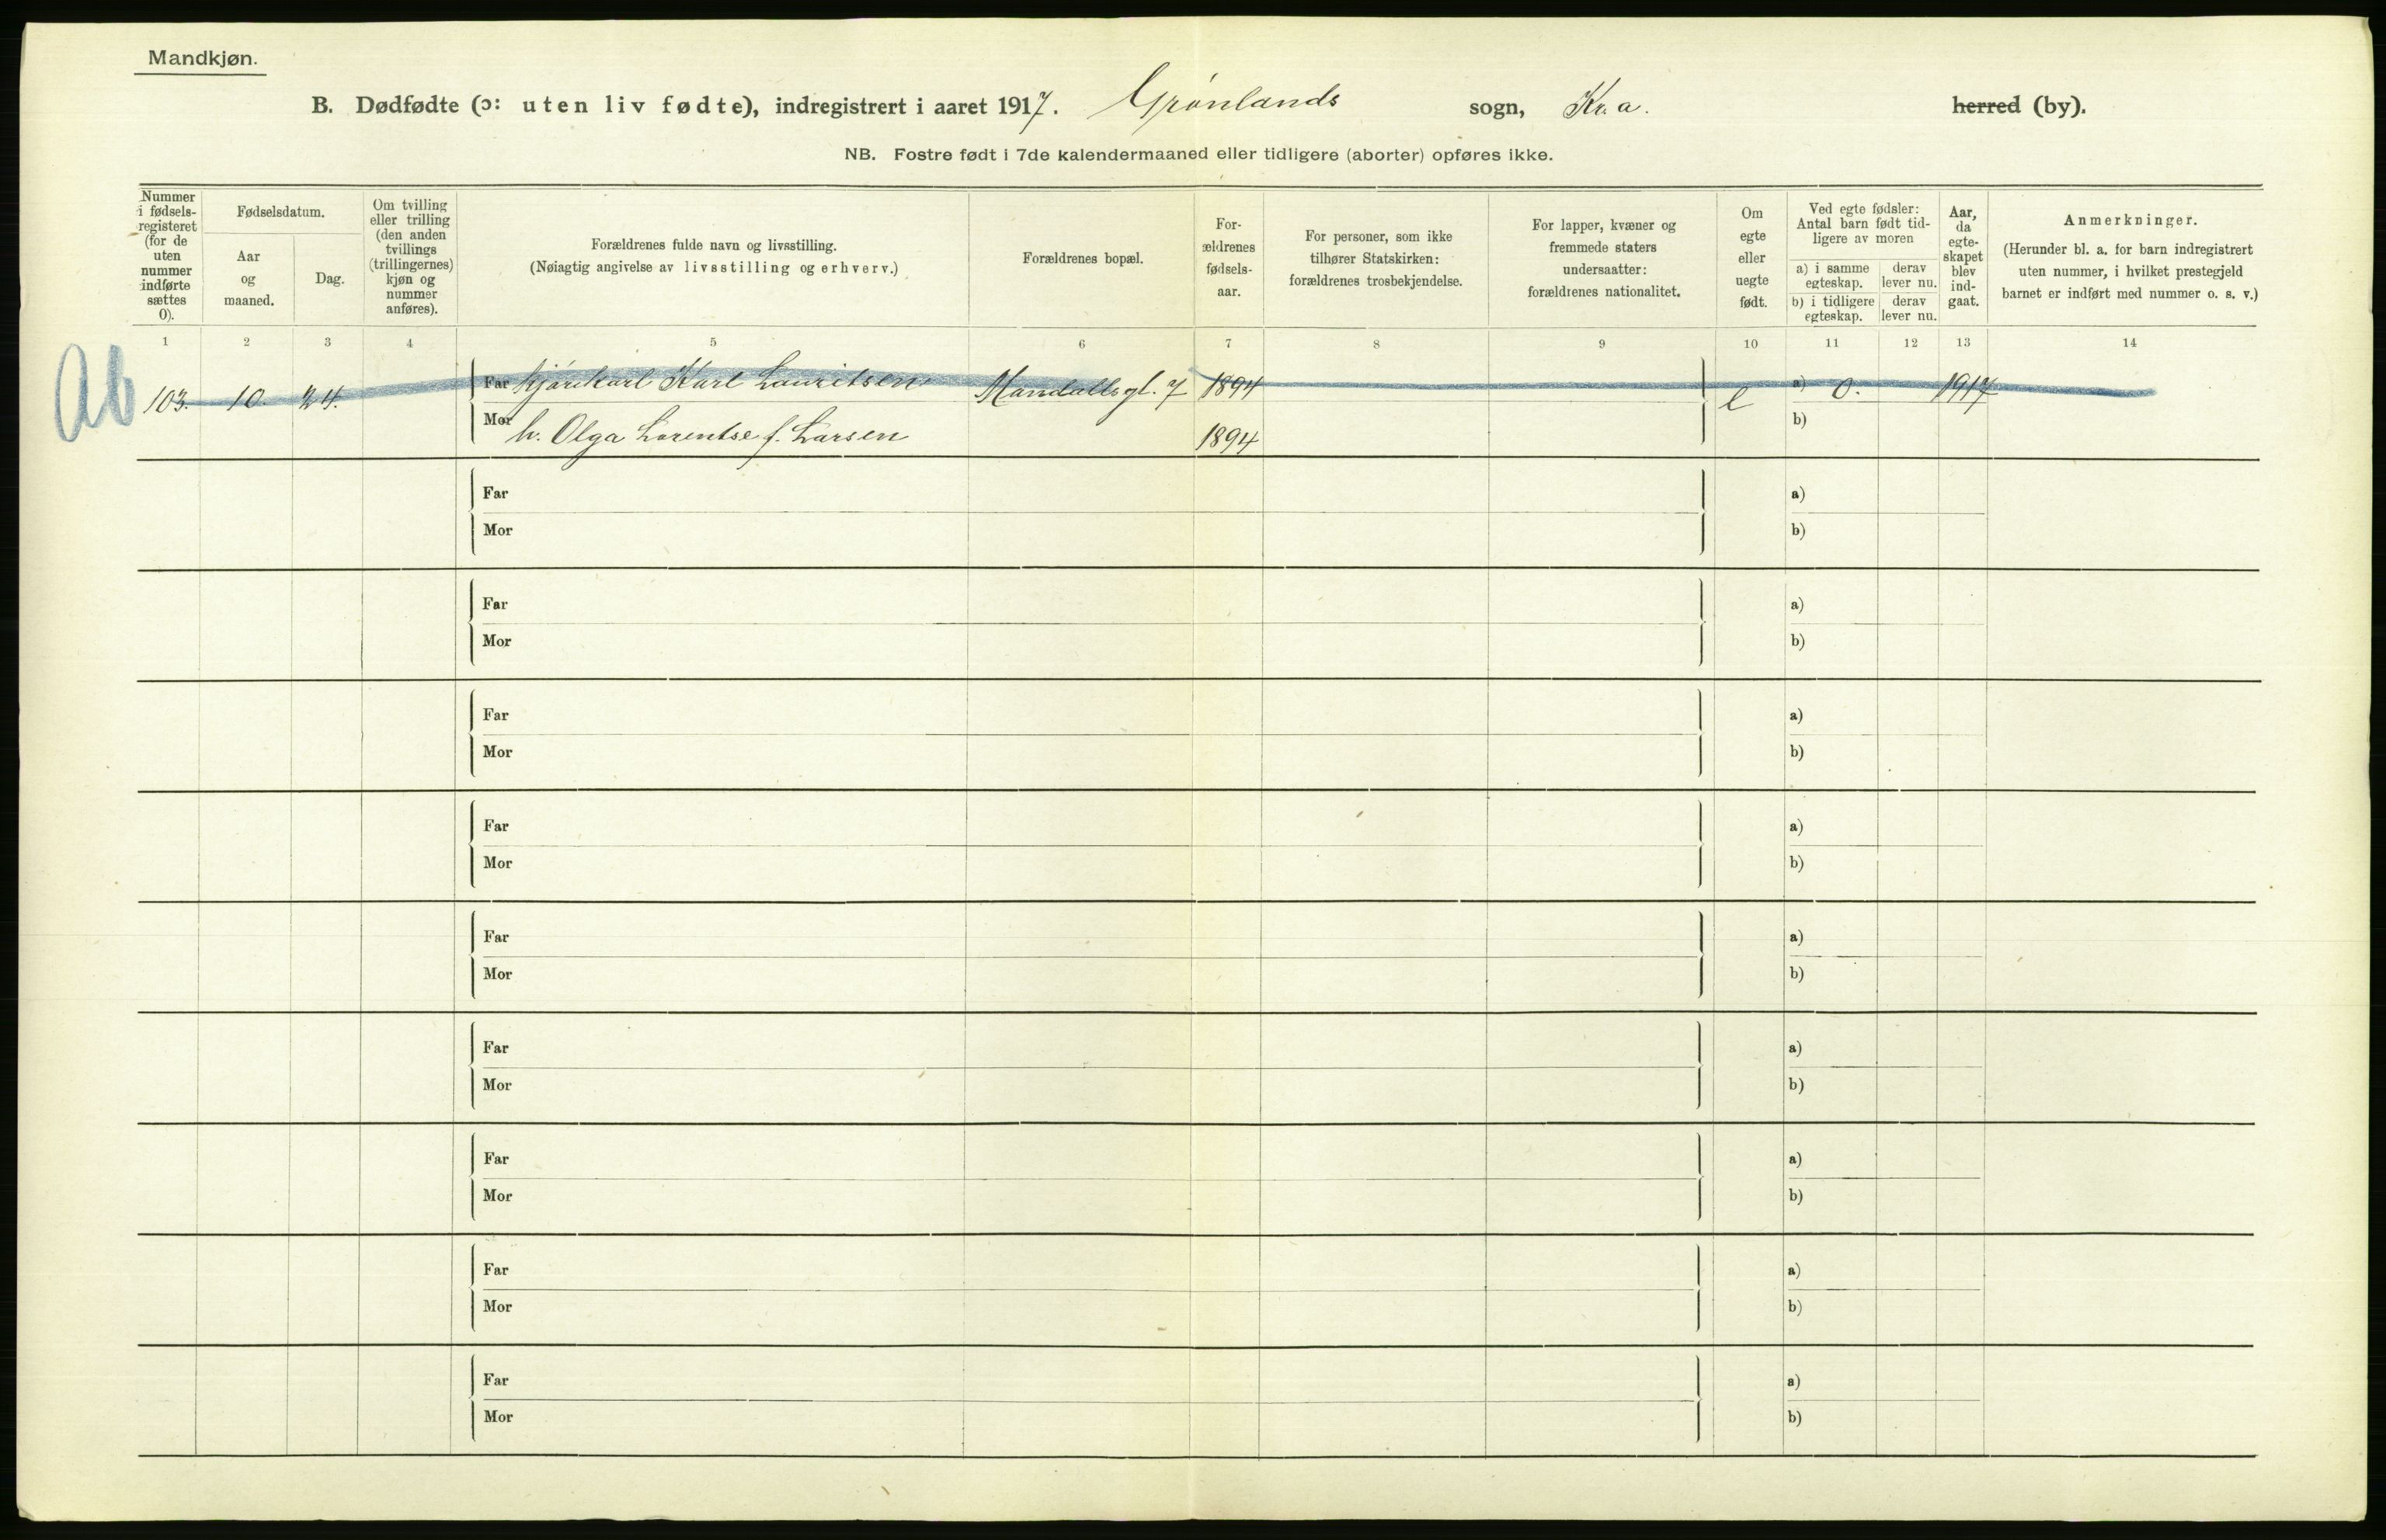 Mandkjøn.
B. Dødfødte (ɔ: uten liv fødte), indregistrert i aaret 1917. Grønlands sogn, Kr.a. herred (by).
NB. Fostre født i 7de kalendermaaned eller tidligere (aborter) opføres ikke.
Nummer i fødsels-registeret (for de uten nummer indførte sættes 0).
Fødselsdatum.
Aar og maaned.
Dag.
Om tvilling eller trilling (den anden tvillings (trillingernes) kjøn og nummer anføres).
Forældrenes fulde navn og livsstilling.
(Nøiagtig angivelse av livsstilling og erhverv.)
Forældrenes bopæl.
For-ældrenes fødsels-aar.
For personer, som ikke tilhører Statskirken: forældrenes trosbekjendelse.
For lapper, kvæner og fremmede staters undersaatter: forældrenes nationalitet.
Om egte eller uegte født.
Ved egte fødsler: Antal barn født tid-ligere av moren
a) i samme egteskap. derav lever nu.
b) i tidligere egteskap. derav lever nu.
Aar, da egte-skapet blev ind-gaat.
Anmerkninger.
(Herunder bl. a. for barn indregistrert uten nummer, i hvilket prestegjeld barnet er indført med nummer o. s. v.)
1 2 3 4 5 6 7 8 9 10 11 12 13 14
Ab
103. 10. 24. Far Kjørekarl Karl Lauritsen Mandallsgt. 7 1894 e a) 0. 1917
Mor h. Olga Lorentse f. Larsen 1894 b)
Far a)
Mor b)
Far a)
Mor b)
Far a)
Mor b)
Far a)
Mor b)
Far a)
Mor b)
Far a)
Mor b)
Far a)
Mor b)
Far a)
Mor b)
Far a)
Mor b)